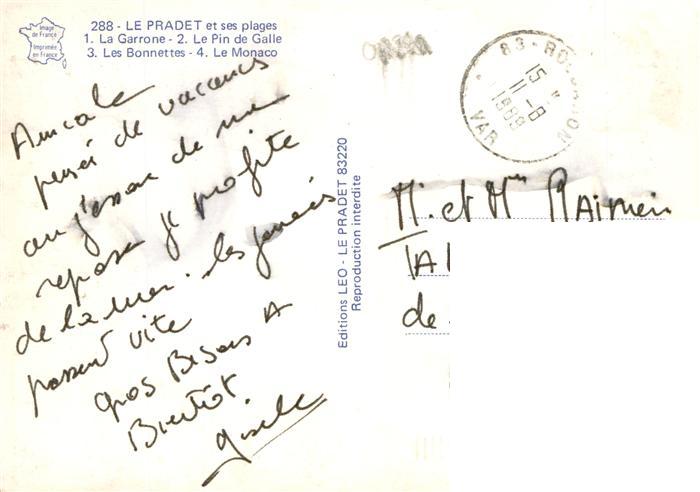 Image
de France
Imprimée
en France
288 - LE PRADET et ses plages
1. La Garrone - 2. Le Pin de Galle
3. Les Bonnettes - 4. Le Monaco
Amicale
pensée de vacances
ou j'essaie de me
reposer je profite
de la mer. les journées
passent vite
gros Bisous A
Bientôt.
Gisèle
Editions LEO - LE PRADET 83220
Reproduction interdite
83 -
15 H
11 - 8
1989
VAR
M. et Mme
de